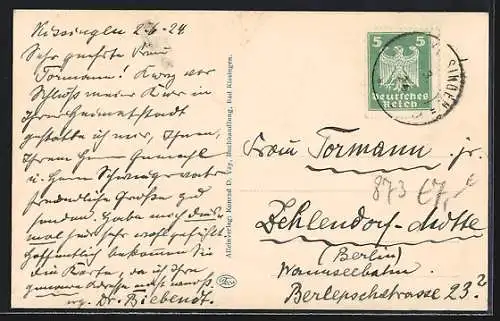 Kissingen 2.6.24
Sehr geehrte Frau
Tormann! Kurz vor
Schluß meiner Kur in
Ihrer Heimatstadt
gestatte ich mir, Ihnen,
Ihrem Herrn Gemahl
u. Herrn Schwiegervater
freundliche Grüße zu
senden. Habe mich dies-
mal sehr wohl gefühlt
Hoffentlich bekommen Sie
die Karte, da ich Ihre
genaue Adresse nicht weiß.
erg. Dr. Biebendt.
Alleinverlag: Konrad D. Vay, Buchhandlung, Bad Kissingen.
5 5
Deutsches
Reich
SINGEN
Frau Tormann jr.
873 €7,-
Zehlendorf-Mitte
(Berlin)
Wannseebahn.
Berlepschstrasse 23.?